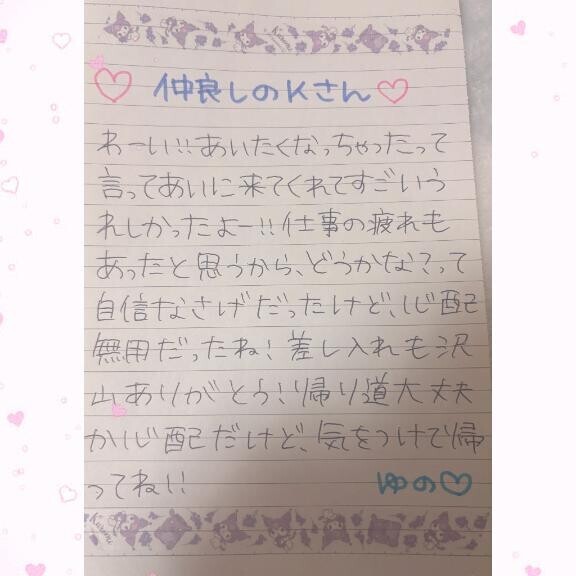 仲良しのKさん
わーい!!あいたくなっちゃったって
言ってあいに来てくれてすごいう
れしかったよー!!仕事の疲れも
あったと思うから、どうかな?って
自信なさげだったけど、心配
無用だったね!差し入れも沢
山ありがとう!帰り道大丈夫
か心配だけど、気をつけて帰
ってね!!
ゆの♡